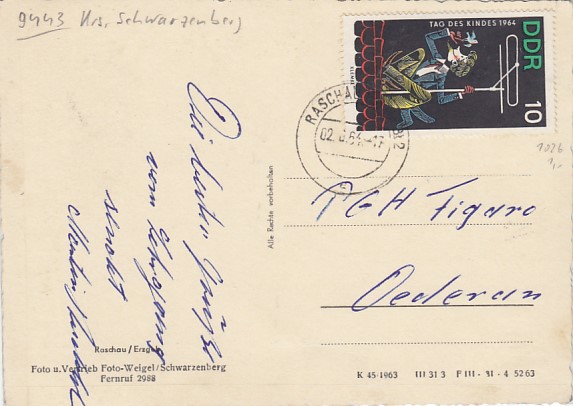 9443 Krs. Schwarzenberg
TAG DES KINDES 1964
DDR
10
RASCHAU
02. 64.-17
1026
1,-
Die besten Grüße
vom Lehrgang
sendet
Alle Rechte vorbehalten
PGH Figaro
Oederan
Raschau / Erzgeb.
Foto u. Vertrieb Foto-Weigel/Schwarzenberg
Fernruf 2988
K 45·1963 III 31 3 F III - 31 - 4 52 63